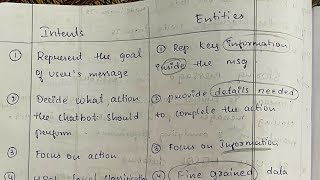 Intents
Entities
① Represent the goal
of user's message
① Rep key information
inside the msg
② Decide what action
the chatbot should
perform
② provide details needed
to complete the action
③ Focus on action
③ Focus on Information
④ level
④ Fine grained data